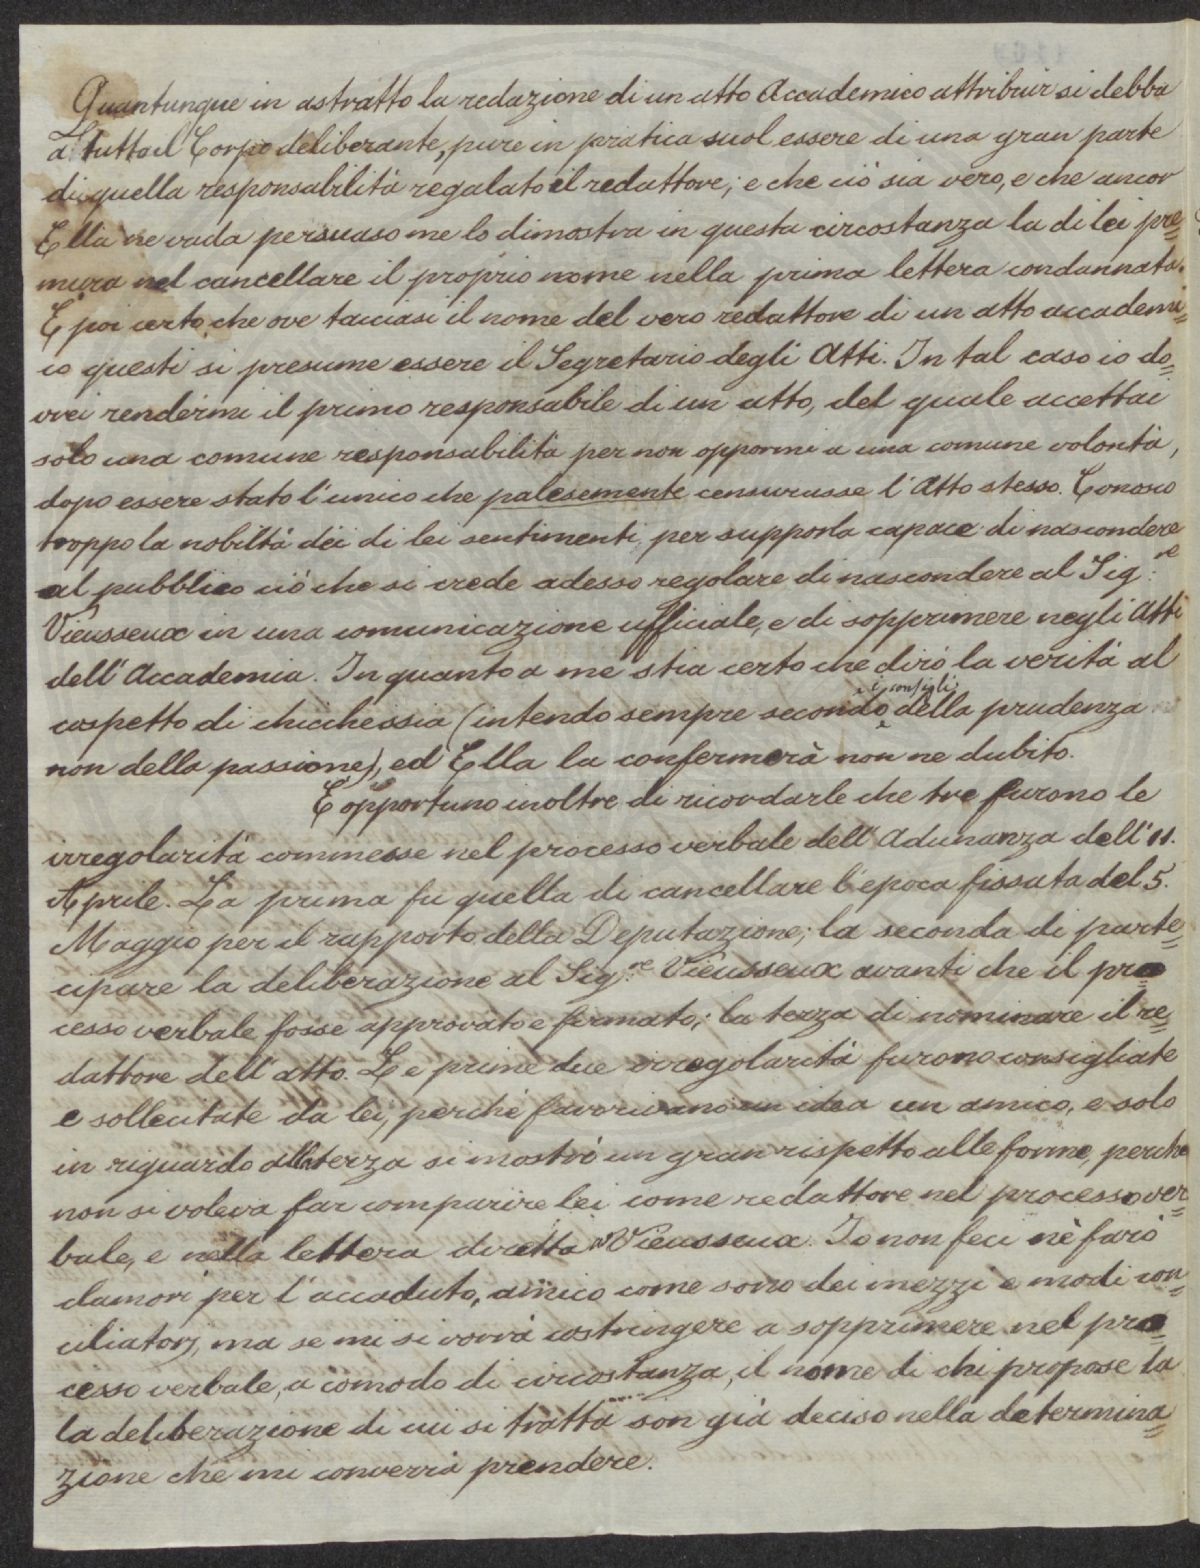 Quantunque in astratto la redazione di un atto Accademico attribuir si debba
a tutto il Corpo deliberante, pure in pratica suol essere di una gran parte
di quella responsabilità regalato il redattore; e che ciò sia vero, e che ancor
Ella ne vada persuaso me lo dimostra in questa circostanza la di lei pre=
mura nel cancellare il proprio nome nella prima lettera condannata.
E poi certo che ove tacciasi il nome del vero redattore di un atto accademi=
co questi si presume essere il Segretario degli Atti. In tal caso io do=
vrei rendermi il primo responsabile di un atto, del quale accettai
solo una comune responsabilità per non oppormi a una comune volontà,
dopo essere stato l'unico che palesemente censurasse l'Atto stesso. Conosco
troppo la nobiltà dei di lei sentimenti per supporla capace di nascondere
al pubblico ciò che si crede adesso regolare di nascondere al Sig.re
Vieusseux in una comunicazione ufficiale, e di sopprimere negli Atti
dell'Accademia. In quanto a me stia certo che dirò la verità al
cospetto di chicchessia (intendo sempre secondo i consigli della prudenza
non della passione), ed Ella la confermerà non ne dubito.
E opportuno inoltre di ricordarle che tre furono le
irregolarità commesse nel processo verbale dell'Adunanza dell'11.
Aprile. La prima fu quella di cancellare l'epoca fissata del 5.
Maggio per il rapporto della Deputazione; la seconda di parte=
cipare la deliberazione al Sig.re Vieusseux avanti che il pro=
cesso verbale fosse approvato e firmato; la terza di nominare il re=
dattore dell'atto. Le prime due irregolarità furono consigliate
e sollecitate da lei, perchè favorivano un idea un amico, e solo
in riguardo alla terza si mostrò un gran rispetto alle forme, perchè
non si voleva far comparire lei come redattore nel processo ver=
bale, e nella lettera diretta a Vieusseux. Io non feci nè farò
clamori per l'accaduto, amico come sono dei mezzi e modi con=
ciliatorj, ma se mi si vorrà costringere a sopprimere nel pro=
cesso verbale, a comodo di circostanza, il nome di chi propose la
la deliberazione di cui si tratta son già deciso nella determina=
zione che mi converrà prendere.